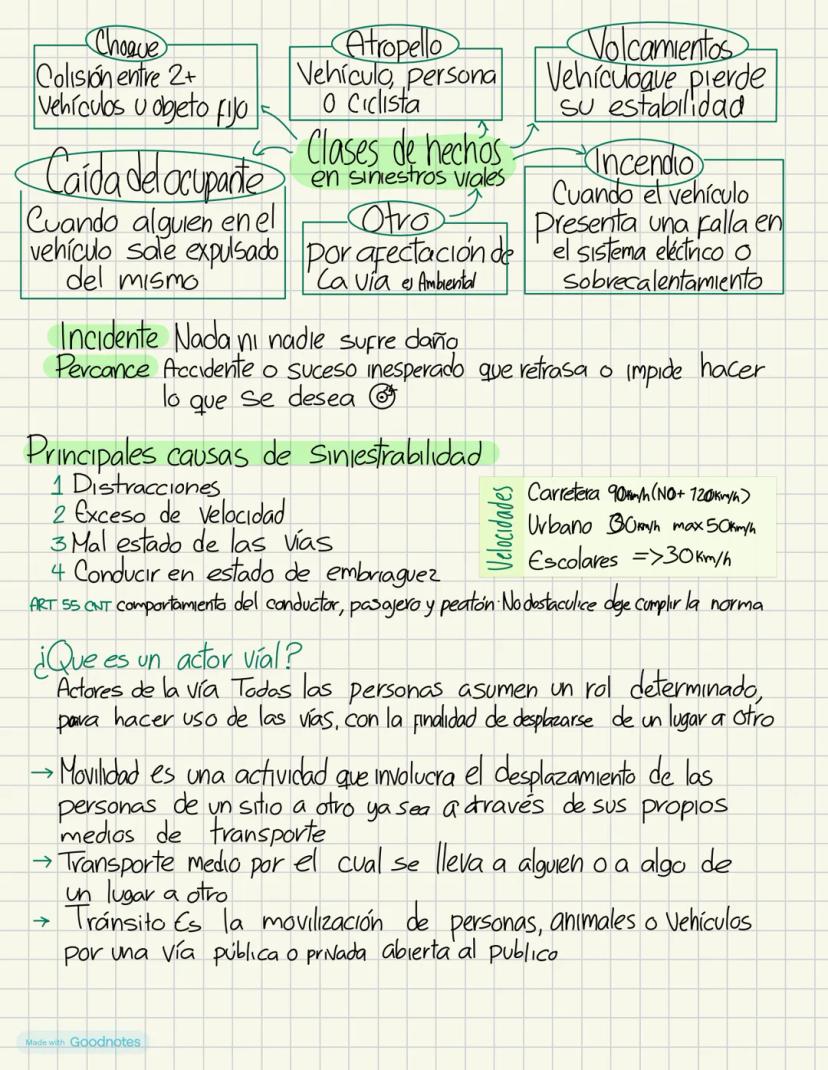 Choque
Colisión entre 2+
vehículos u objeto fijo
Atropello
Vehículo, persona
o ciclista
Volcamientos
Vehículoque pierde
su estabilidad
Clases de hechos
en siniestros viales
Caída del ocupante
Cuando alguien en el
vehículo sale expulsado
del mismo
Otro
por afectación de
la vía ej Ambiental
Incendio
Cuando el vehículo
Presenta una falla en
el sistema eléctrico o
sobrecalentamiento
Incidente Nada ni nadie sufre daño
Percance Accidente o suceso inesperado que retrasa o impide hacer
lo que se desea
Principales causas de siniestrabilidad
1 Distracciones
2 Exceso de velocidad
3 Mal estado de las vías
4 Conducir en estado de embriaguez
Velocidades
Carretera 90km/h (NO + 120km/h)
Urbano 30km/h max 50km/h
Escolares => 30 km/h
ART 55 CNT comportamiento del conductor, pasajero y peatón. No obstaculice deje cumplir la norma
¿Que es un actor víal?
Actores de la vía Todas las personas asumen un rol determinado,
para hacer uso de las vías, con la finalidad de desplazarse de un lugar a otro
→ Movilidad es una actividad que involucra el desplazamiento de las
personas de un sitio a otro ya sea a través de sus propios
medios de transporte
→ Transporte medio por el cual se lleva a alguien o a algo de
un lugar a otro
→ Tránsito Es la movilización de personas, animales o vehículos
por una vía pública o privada abierta al publico
Made with Goodnotes